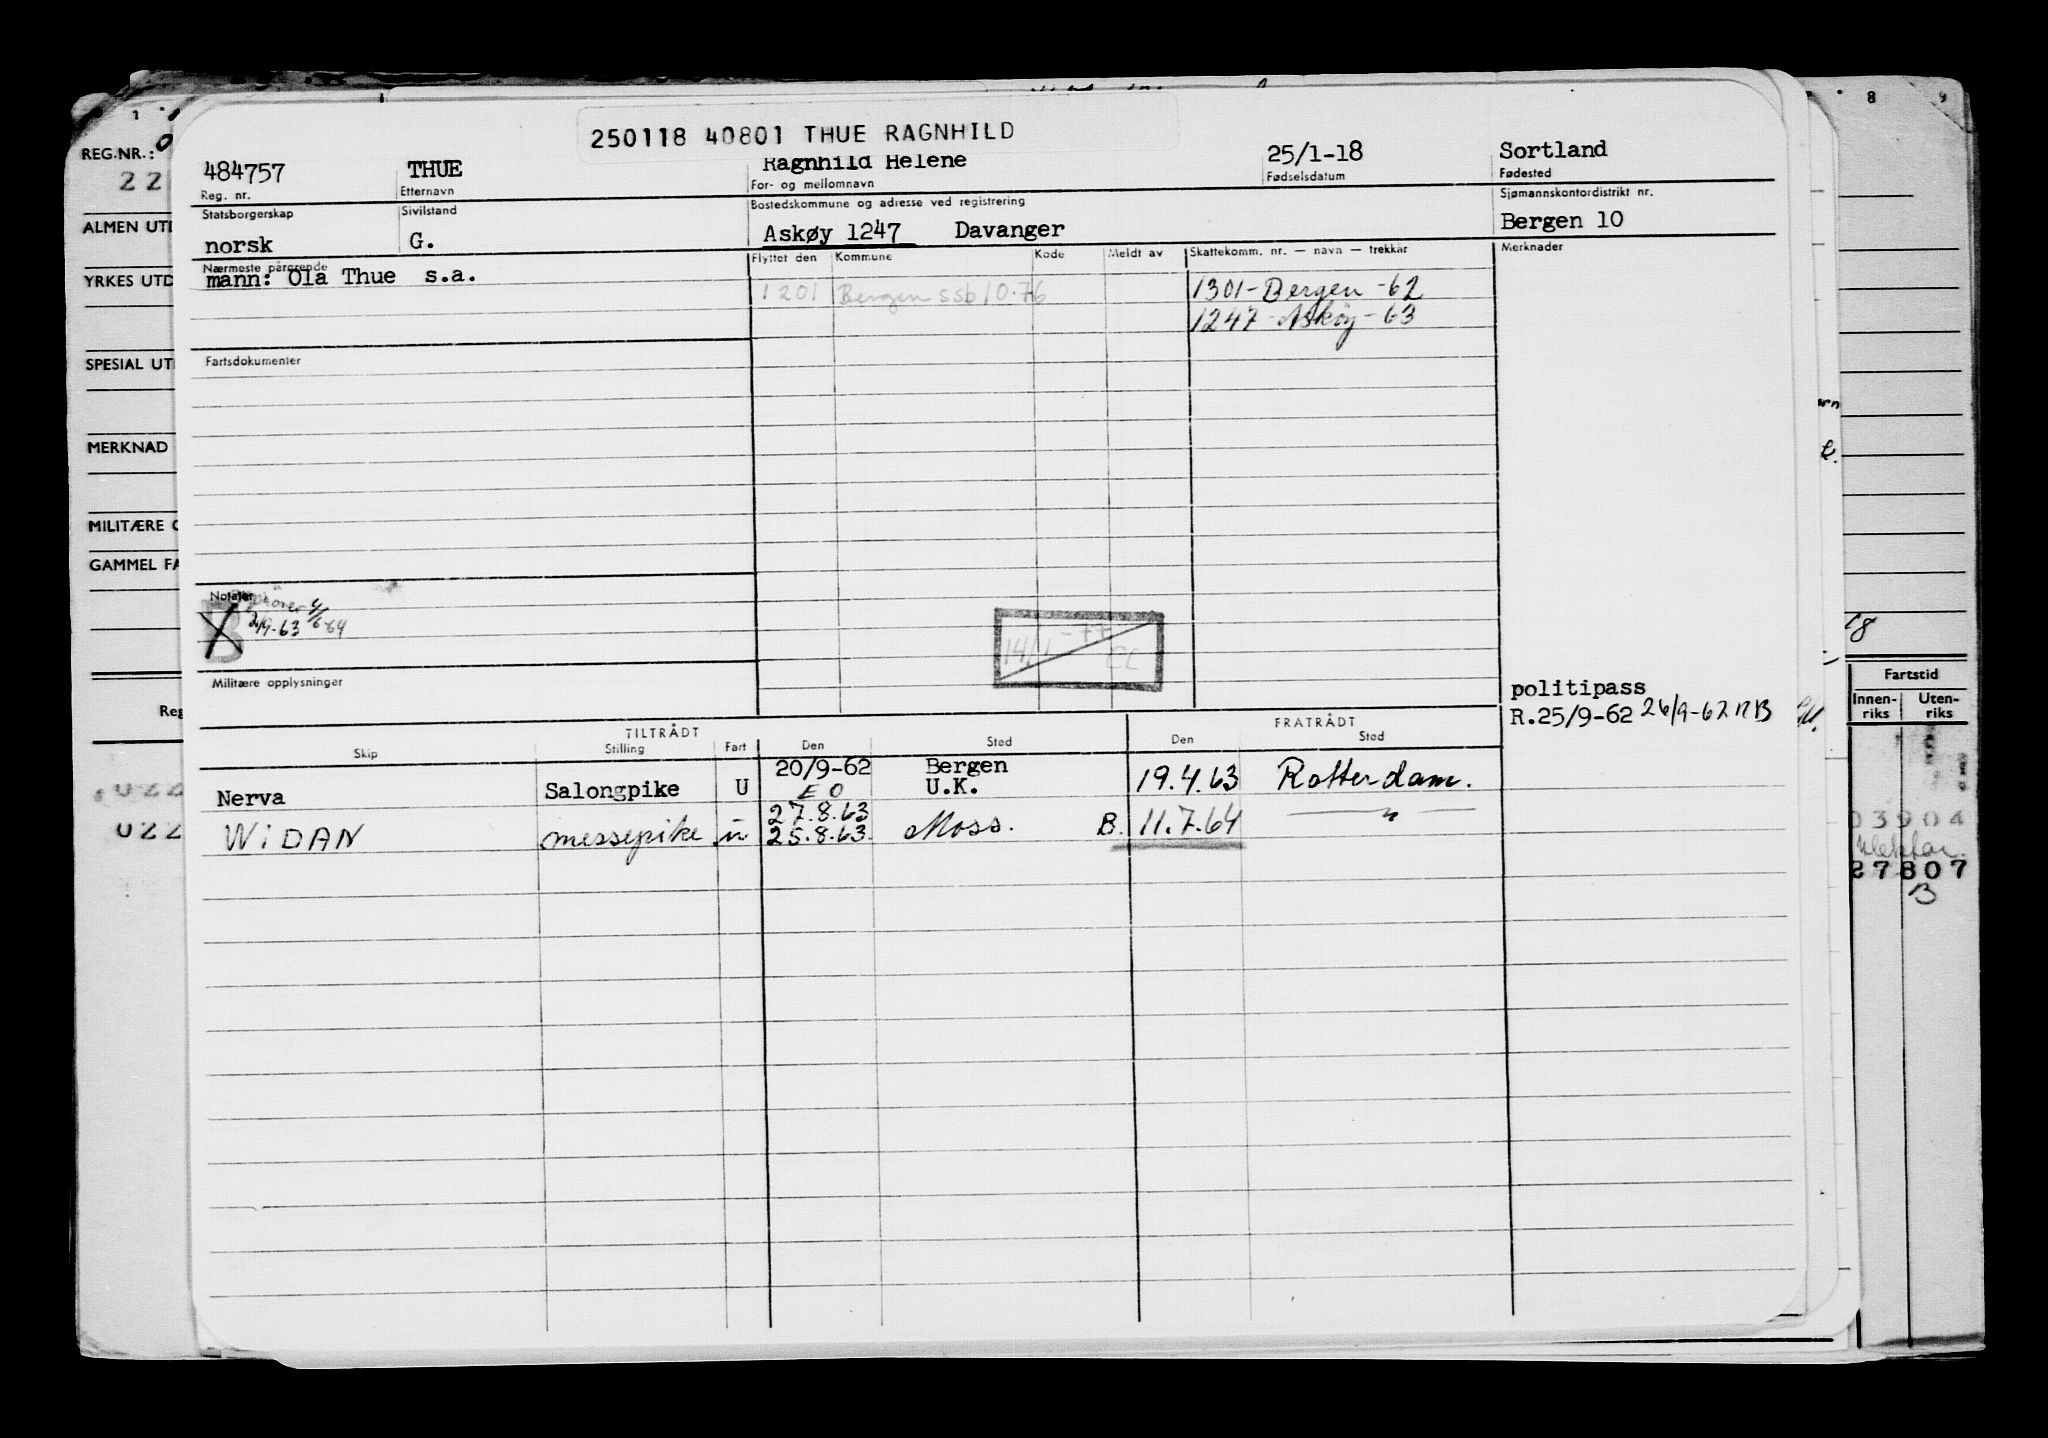 250118 40801 THUE RAGNHILD
484757 THUE Ragnhild Helene 25/1-18 Sortland
Reg. nr. Etternavn For- og mellomnavn Fødselsdatum Fødested
Statsborgerskap Sivilstand Bostedskommune og adresse ved registrering Sjømannskontordistrikt nr.
norsk G. Askøy 1247 Davanger Bergen 10
Nærmeste pårørende Flyttet den Kommune Kode Meldt av Skattekomm. nr. — navn — trekkår Merknader
mann: Ola Thue s.a.
1201 Bergen ssb 10.76 1301-Bergen-62
1247-Askøy-63
Fartsdokumenter
Notater
B
2/9-63 4/6-64
14/1-77
CL
Militære opplysninger
politipass
R.25/9-62 26/9-62
TILTRÅDT FRATRÅDT
Skip Stilling Fart Den Sted Den Sted
Nerva Salongpike U 20/9-62 Bergen U.K. 19.4.63 Rotterdam.
E O
27.8.63
WiDAN messepike u 25.8.63. Moss. B. 11.7.64 — " —
1
REG.NR.: 0
22
ALMEN UTD
YRKES UTD
SPESIAL UTD
MERKNAD
MILITÆRE O
GAMMEL FA
Reg
022
022
8 9
18
Fartstid
Innen-riks Uten-riks
03904
27807
B